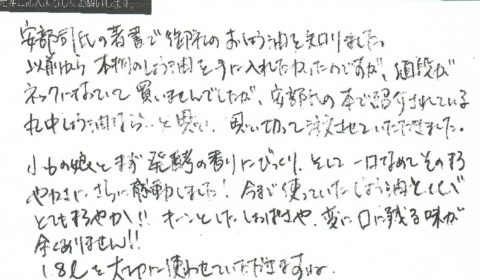 安部司氏の著書で御社のおしょう油を知りました。
以前から本物のしょう油を手に入れたかったのですが、値段が
ネックになっていて買いませんでしたが、安部氏の本で紹介されている
しょう油なら…と思い、思い切って注文させていただきました。
小6の娘とまず発酵の香りにびっくり、そして一口なめてそのまろ
やかさにさらに感動しました！今まで使っていたしょう油とくらべ
とてもまろやか!!キーンとしたしょっぱさや、変に口に残る味が
全くありません!!
1.8ℓを大切に使わせていただきますね